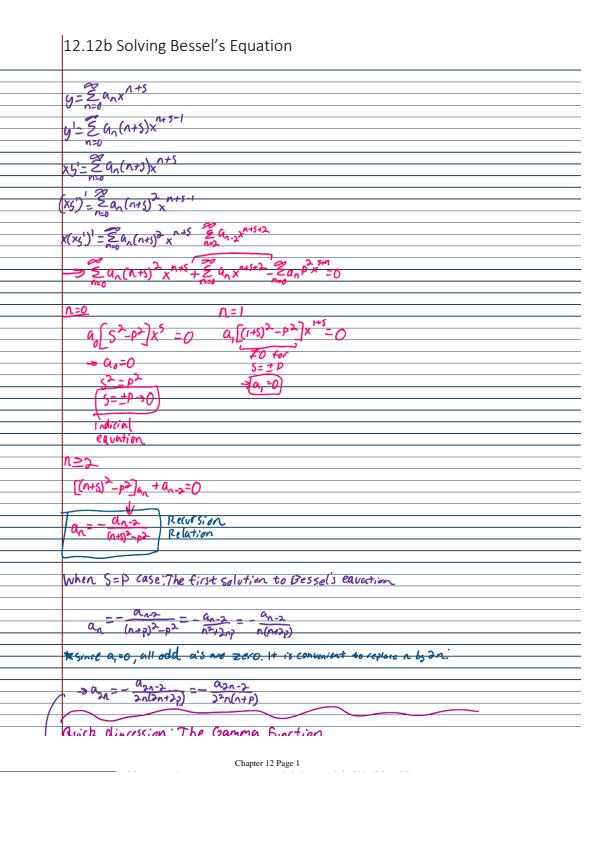 12.12b Solving Bessel's Equation
y = ∑_{n=0}^{∞} a_n x^{n+s}
y' = ∑_{n=0}^{∞} a_n (n+s) x^{n+s-1}
xy' = ∑_{n=0}^{∞} a_n (n+s) x^{n+s}
(xy')' = ∑_{n=0}^{∞} a_n (n+s)^2 x^{n+s-1}
x(xy')' = ∑_{n=0}^{∞} a_n (n+s)^2 x^{n+s} ∑_{n=2}^{∞} a_{n-2} x^{n+s+2}
→ ∑_{n=0}^{∞} a_n (n+s)^2 x^{n+s} + ∑_{n=0}^{∞} a_n x^{n+s+2} - ∑_{n=0}^{∞} a_n p^2 x^{s+n} = 0
n=0 n=1
a_0 [s^2 - p^2] x^s = 0 a_1 [(1+s)^2 - p^2] x^{1+s} = 0
→ a_0 = 0 ≠0 for
s^2 = p^2 s = ±p
s = ±p → 0 → a_1 = 0
indicial
equation
n ≥ 2
[(n+s)^2 - p^2] a_n + a_{n-2} = 0
↓
a_n = - a_{n-2} / ((n+s)^2 - p^2) Recursion
Relation
When S=P case: The first solution to Bessel's equation
a_n = - a_{n-2} / ((n+p)^2 - p^2) = - a_{n-2} / (n^2 + 2np) = - a_{n-2} / (n(n+2p))
★ Since a_1=0, all odd a's are zero. It is convenient to replace n by 2n:
→ a_{2n} = - a_{2n-2} / (2n(2n+2p)) = - a_{2n-2} / (2^2 n(n+p))
Quick digression: The Gamma function
Chapter 12 Page 1